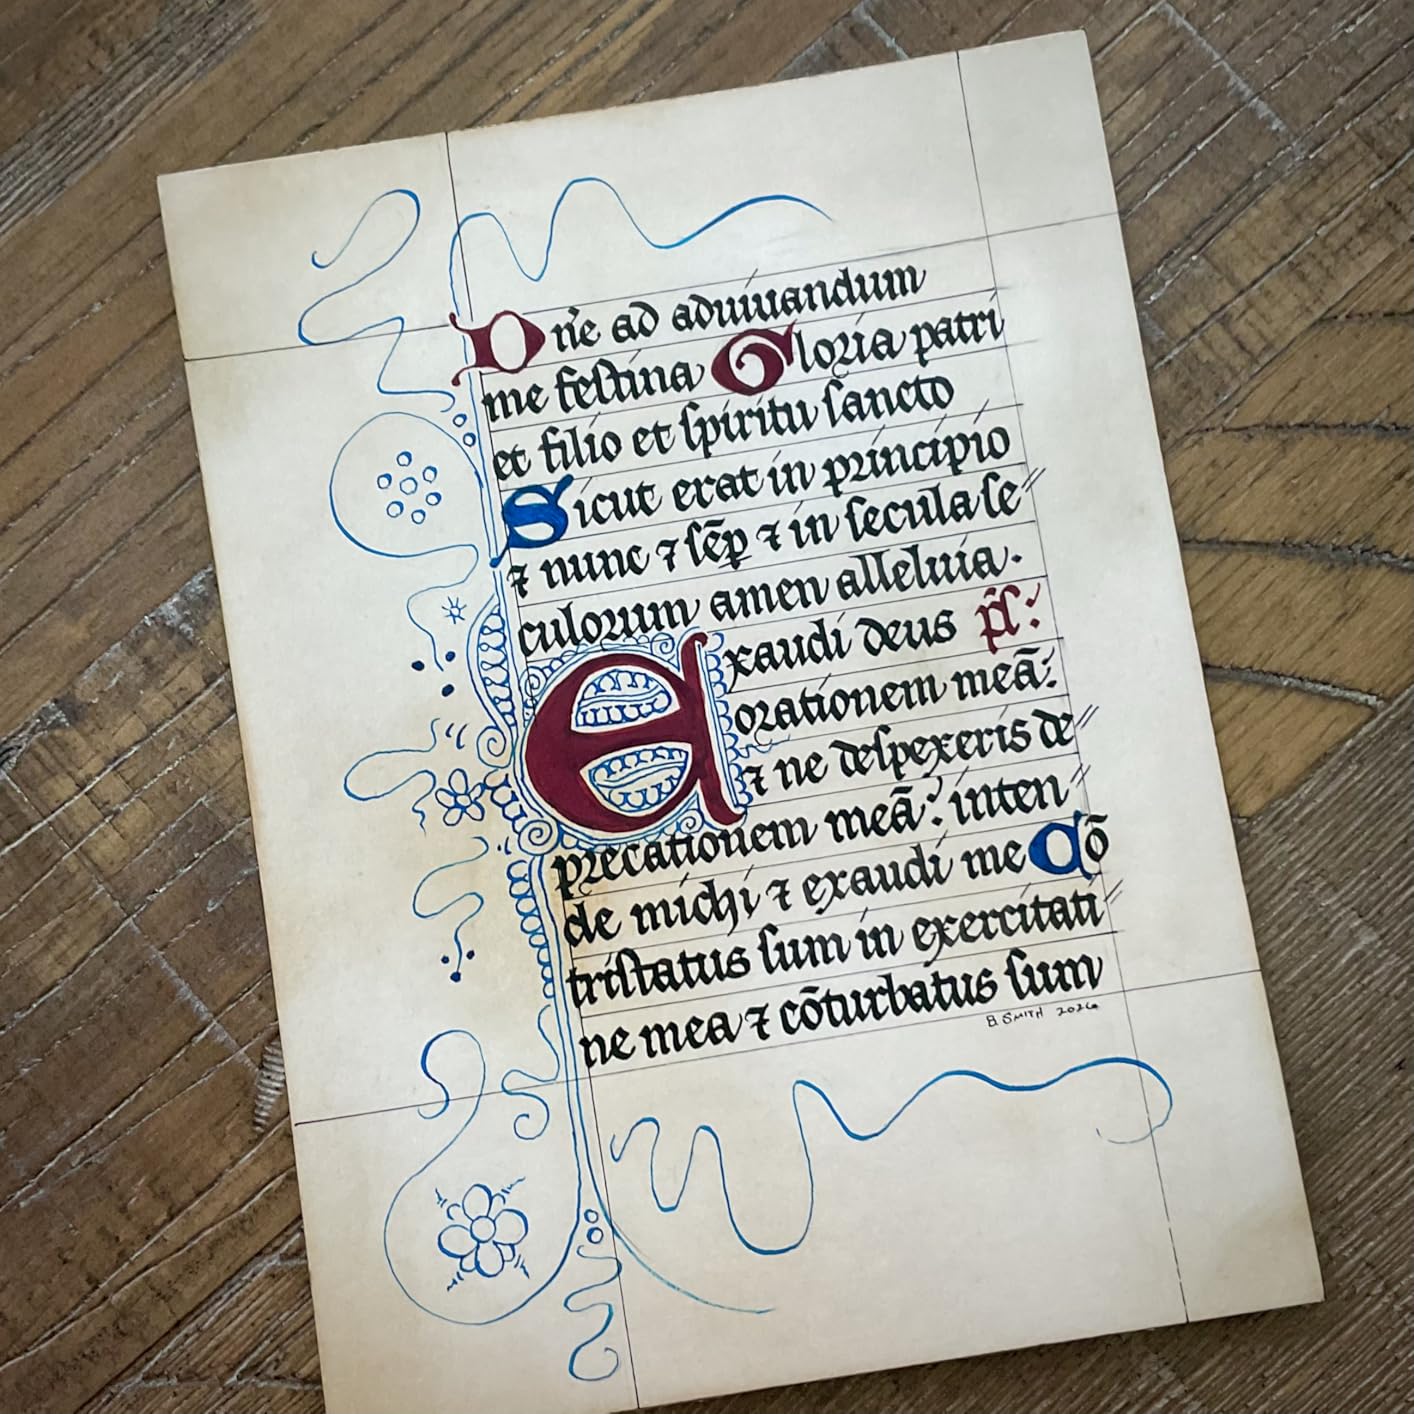 Dn̄e ad adiuuandum
me festina Gloria patri
et filio et spiritu sancto
Sicut erat in principio
⁊ nunc ⁊ sēp ⁊ in secula se
culorum amen alleluia.
Exaudi deus ps̄:
orationem meā:
⁊ ne despexeris de
precationem meā: inten
de michi ⁊ exaudi me Cō
tristatus sum in exercitati
ne mea ⁊ cōturbatus sum
B SMITH 2026